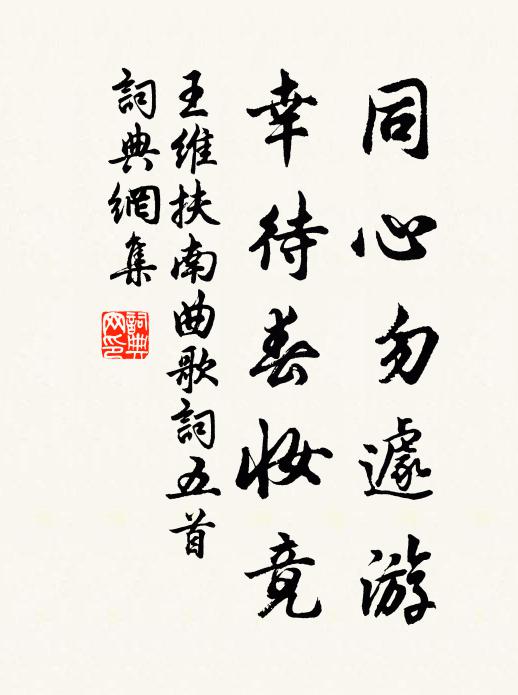 同心勿遽游
幸待春妝竟
王維扶南曲歌詞五首
詞典網集
詞典網印